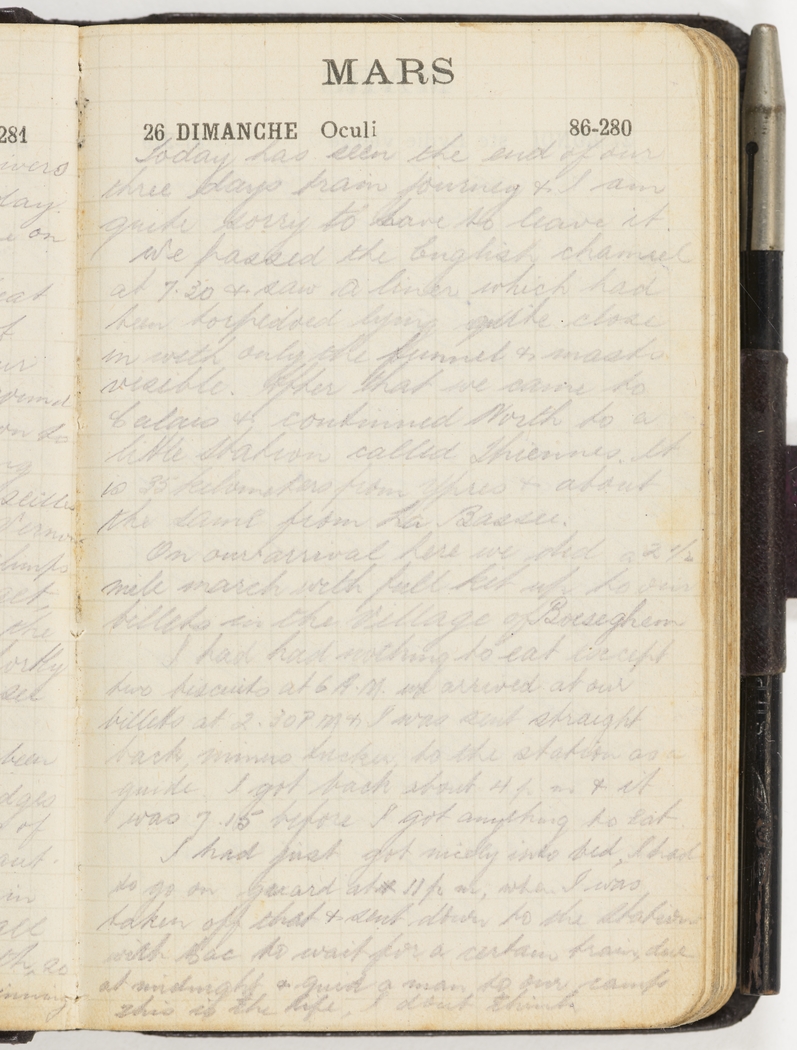 281
ivers
day
e on
eat
f
ur
on to
ng
the
see
been
dges
of
in
all
MARS
26 DIMANCHE Oculi 86-280
Today has seen the end of our
three days train journey & I am
quite sorry to have to leave it.
We passed the English channel
at 7.30 & saw a liner which had
been torpedoed lying quite close
in with only the funnel & masts
visible. After that we came to
Calais & continued North to a
little station called Thiennes. It
is 35 kilometers from Ypres & about
the same from La Bassee.
On our arrival here we did a 2 1/2
mile march with full kit up to our
billets in the village of Boeseghem
I had had nothing to eat except
two biscuits at 6 A.M. we arrived at our
billets at 2.30 P M & I was sent straight
back, minus tucker, to the station as a
guide. I got back about 4 p m & it
was 7.15 before I got anything to eat
I had just got nicely into bed, I had
to go on guard at 11 p m, when I was
taken off that & sent down to the station
with Mac to wait for a certain train, due
at midnight & guide a man to our camp
this is the life, I dont think.